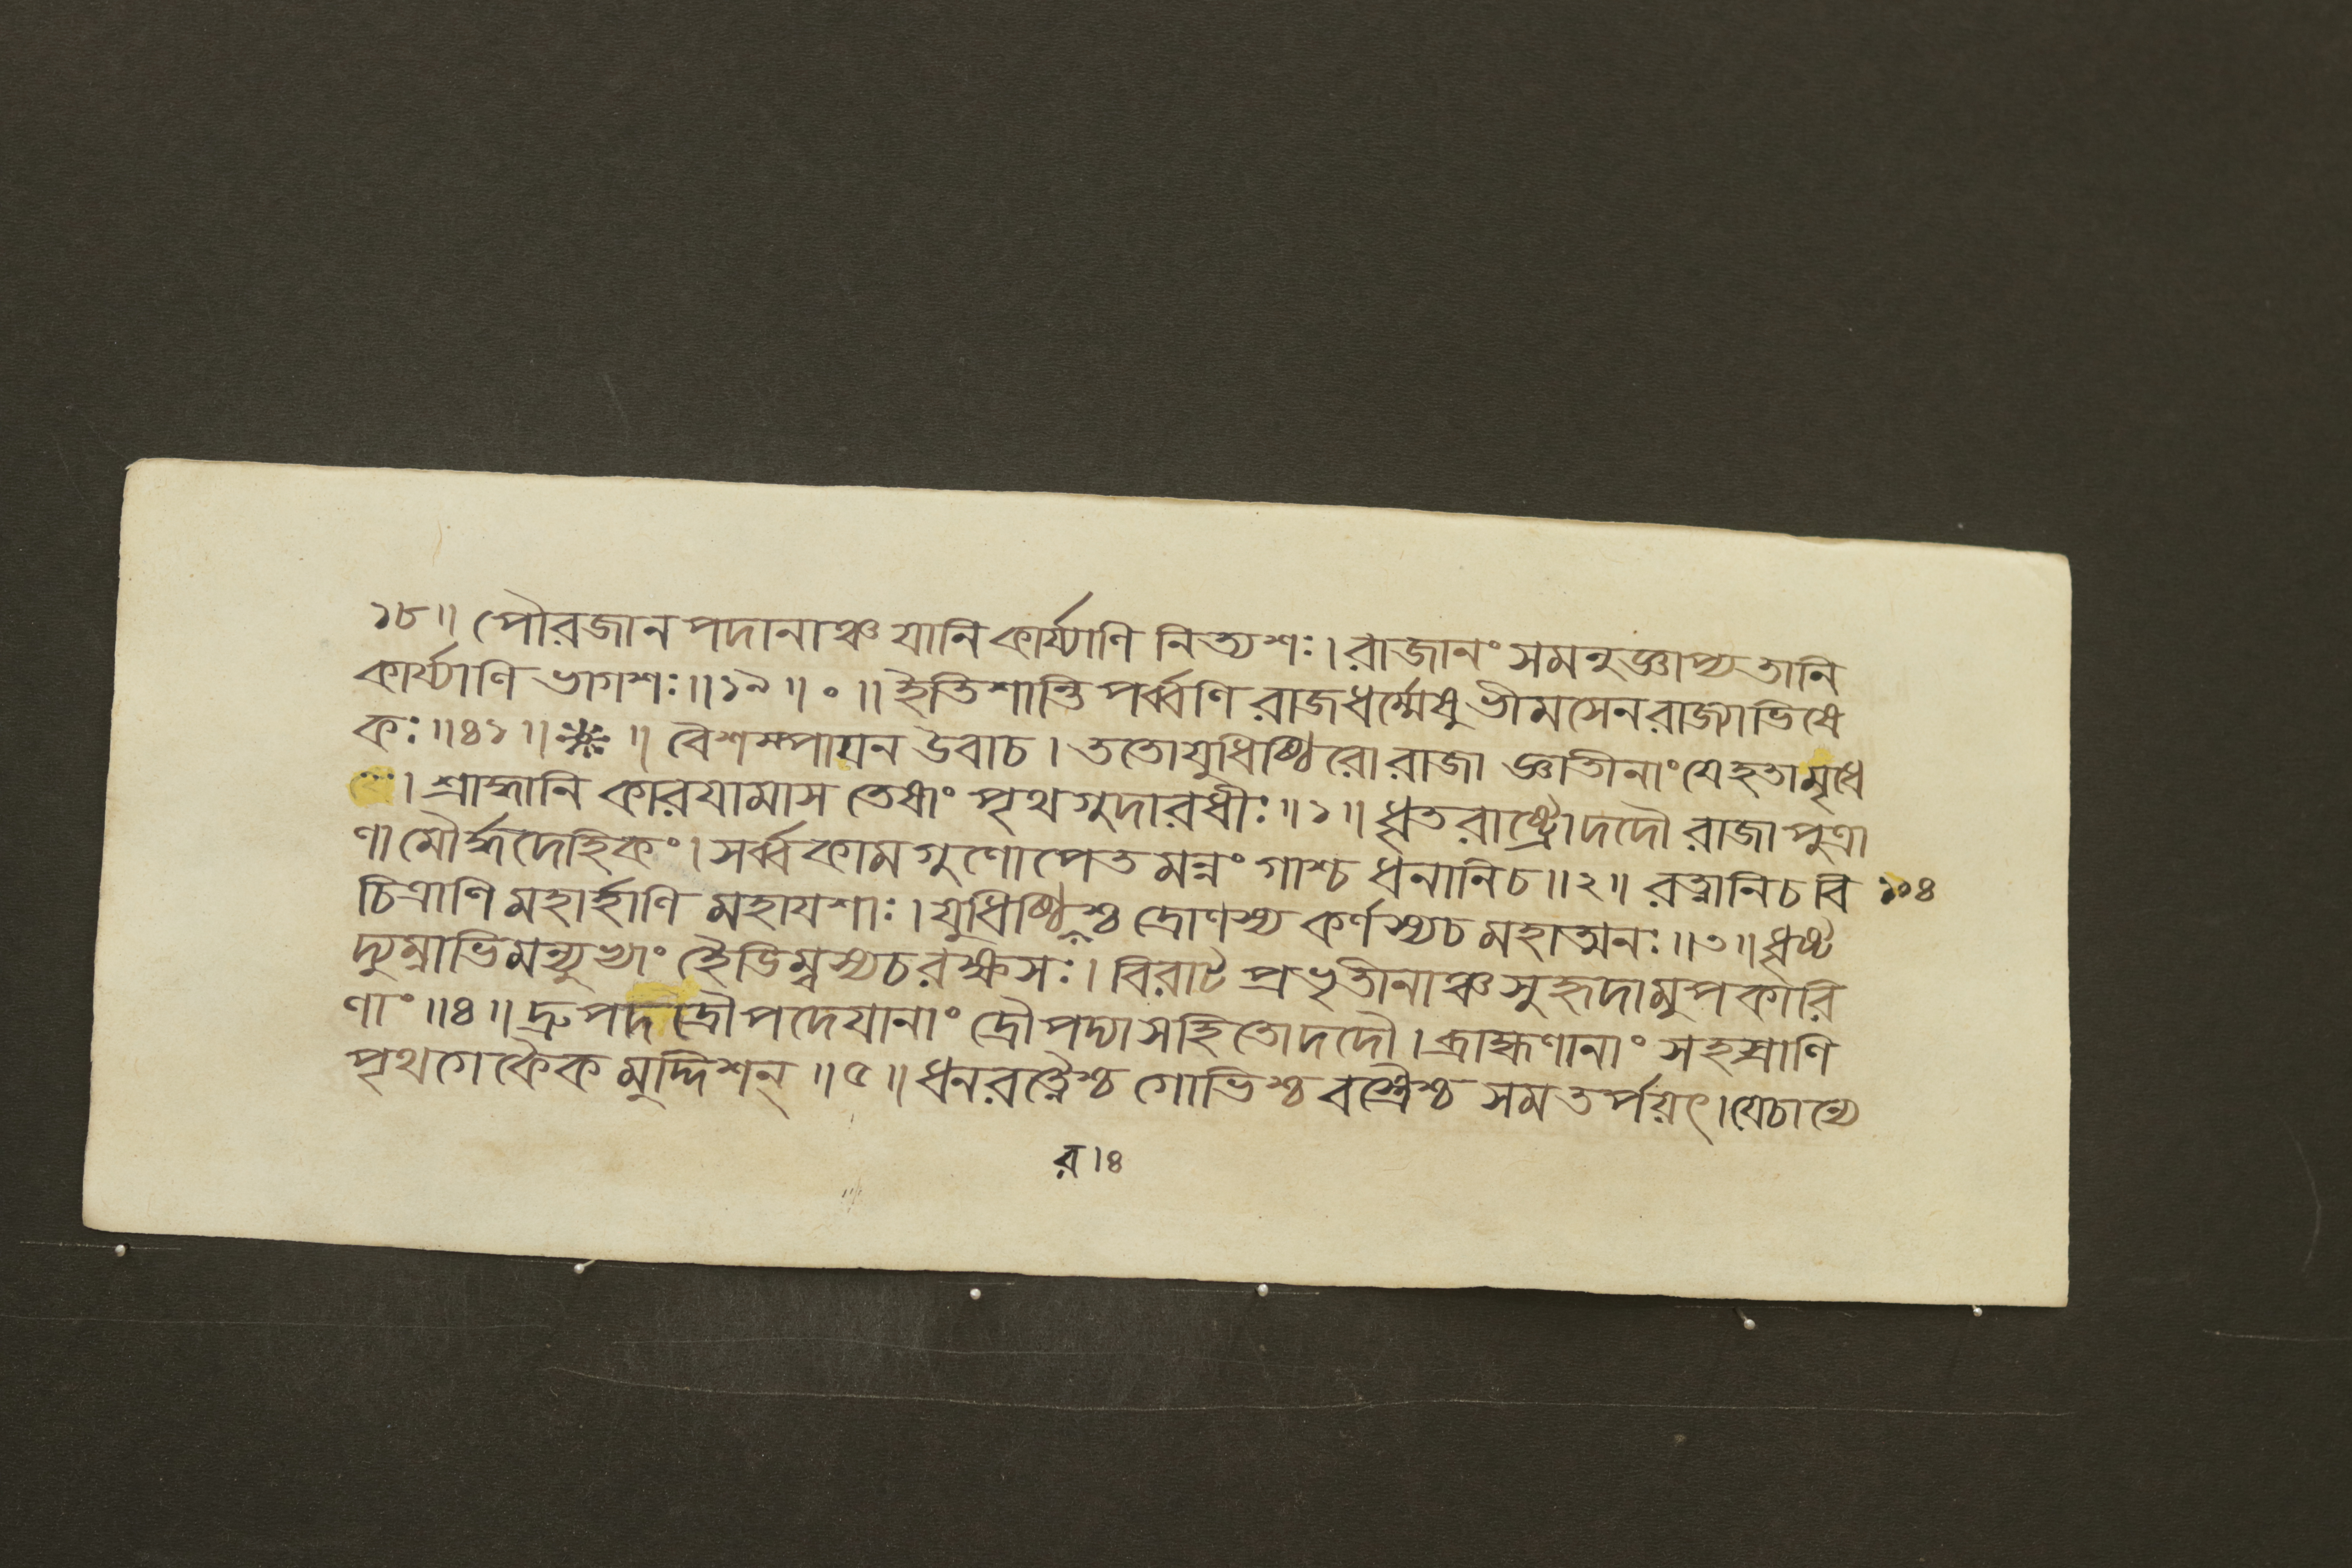 ১৮॥ পৌরজানপদানাঞ্চ যানি কার্য্যাণি নিত্যশঃ। রাজানং সমনুজ্ঞাপ্য তানি
কার্য্যাণি ভাগশঃ॥১৯॥०॥ ইতি শান্তিপর্ব্বণি রাজধর্ম্মেষু ভীমসেনরাজ্যাভিষে
কঃ॥৪১॥ ॥ বৈশম্পায়ন উবাচ। ততো যুধিষ্ঠিরো রাজা জ্ঞাতীনাং যে হতা মৃধে
। শ্রাদ্ধানি কারযামাস তেষাং পৃথগুদারধীঃ॥১॥ ধৃতরাষ্ট্রো দদৌ রাজা পুত্রা
ণামৌর্দ্ধদেহিকং। সর্ব্বকামগুণোপেতমন্নং গাশ্চ ধনানি চ॥২॥ রত্নানি চ বি ১০৪
চিত্রাণি মহার্হাণি মহাযশাঃ। যুধিষ্ঠিরস্তু দ্রোণস্য কর্ণস্য চ মহাত্মনঃ॥৩॥ ধৃষ্ট
দ্যুম্নাভিমন্যুভ্যাং হৈডিম্বস্য চ রক্ষসঃ। বিরাট প্রভৃতীনাঞ্চ সুহৃদামুপকারি
ণাং॥৪॥ দ্রুপদদ্রৌপদেযানাং দ্রৌপদ্যা সহিতো দদৌ। ব্রাহ্মণানাং সহস্রাণি
পৃথগেকৈকমুদ্দিশন্॥৫॥ ধনরত্নৈশ্চ গোভিশ্চ বস্ত্রৈশ্চ সমতর্পয়ৎ। যে চান্যে
র।৪